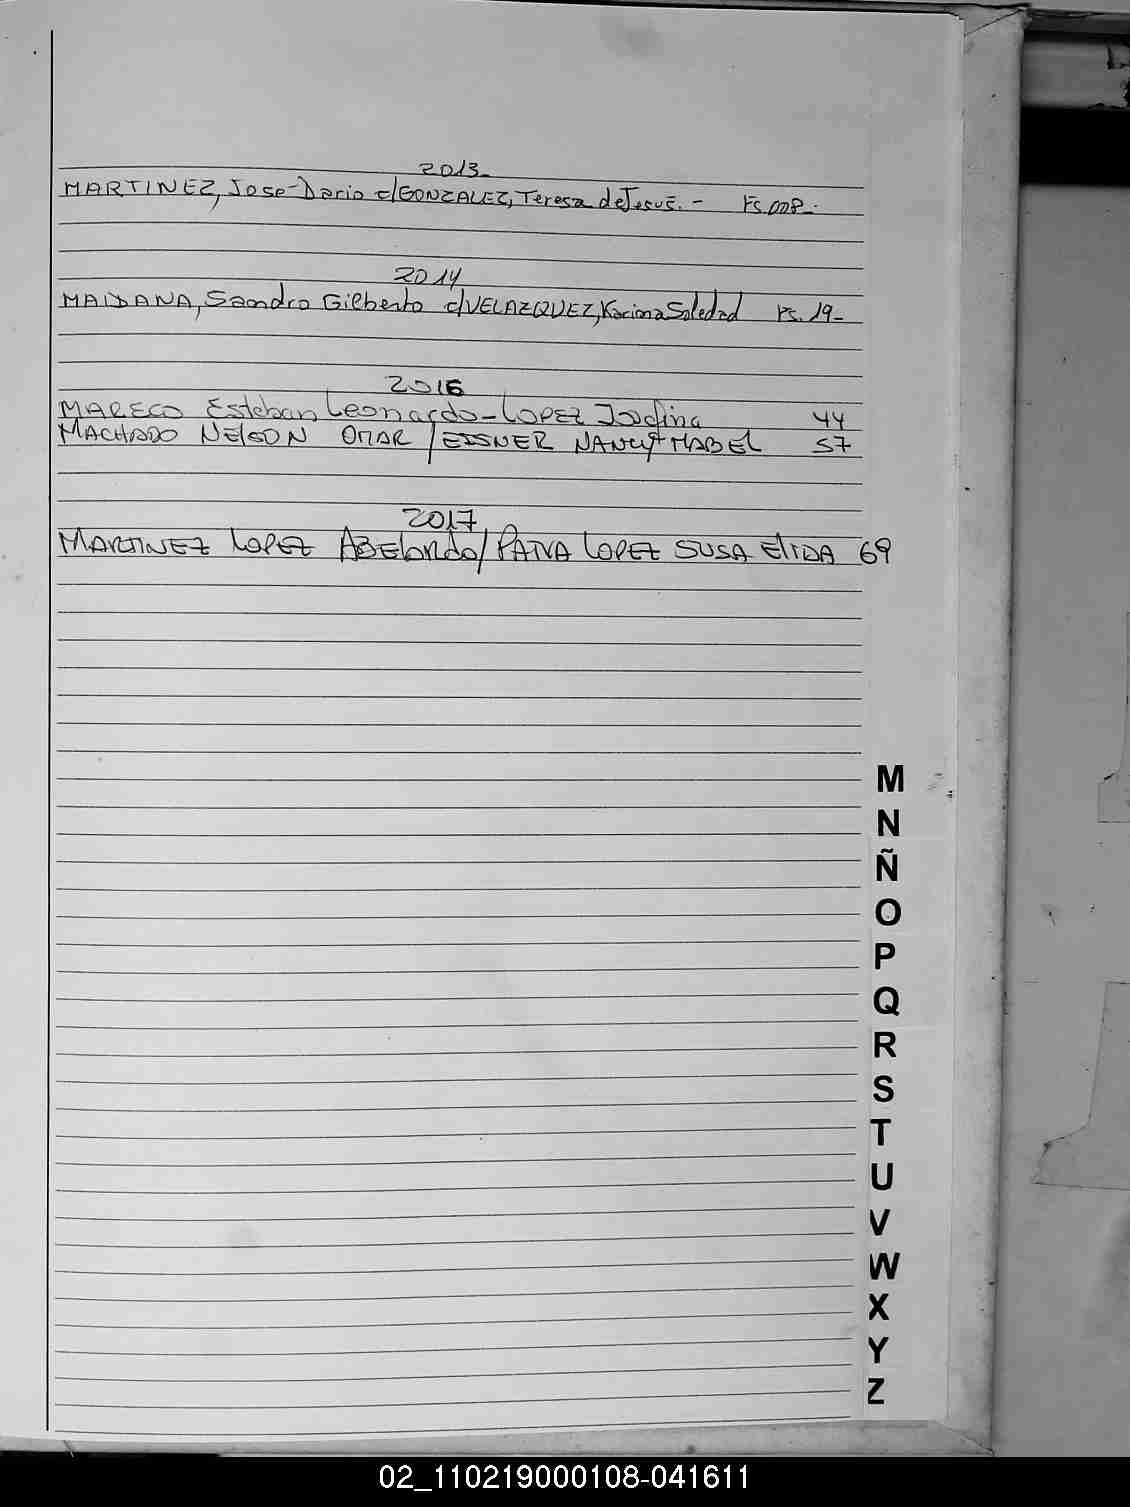 2013-
MARTINEZ, Jose-Dario c/GONZALEZ, Teresa de Jesus.- Fs. 008-.
2014
MAIDANA, Sandro Gilberto c/VELAZQUEZ, Karina Soledad Fs. 19-
2016
MARECO Esteban Leonardo-LOPEZ Josefina 44
MACHADO NELSON OMAR / EISNER NANCY MABEL 57
2017
MARTINEZ LOPEZ ABELARDO / PAIVA LOPEZ SUSA ELIDA 69
M
N
Ñ
O
P
Q
R
S
T
U
V
W
X
Y
Z
02_110219000108-041611